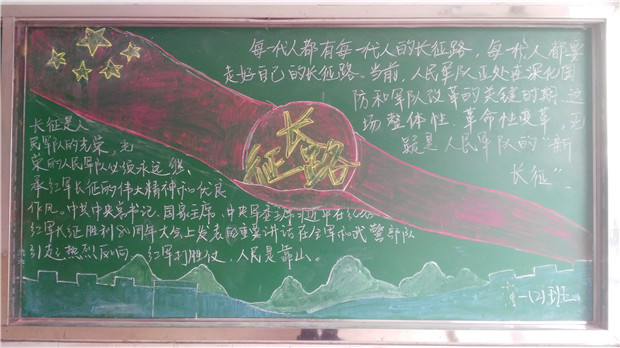 每一代人都有每一代人的长征路，每一代人都要
走好自己的长征路。当前，人民军队正处在深化国
防和军队改革的关键时期，这
场整体性、革命性变革，无
疑是人民军队的“新
长征”。
长征路
长征是人
民军队的光荣，光
荣的人民军队必须永远继
承红军长征的伟大精神和优良
作风。中共中央总书记、国家主席、中央军委主席习近平在
红军长征胜利80周年大会上发表的重要讲话在全军和武警部队
引起热烈反响。红军打胜仗，人民是靠山。
(2)班